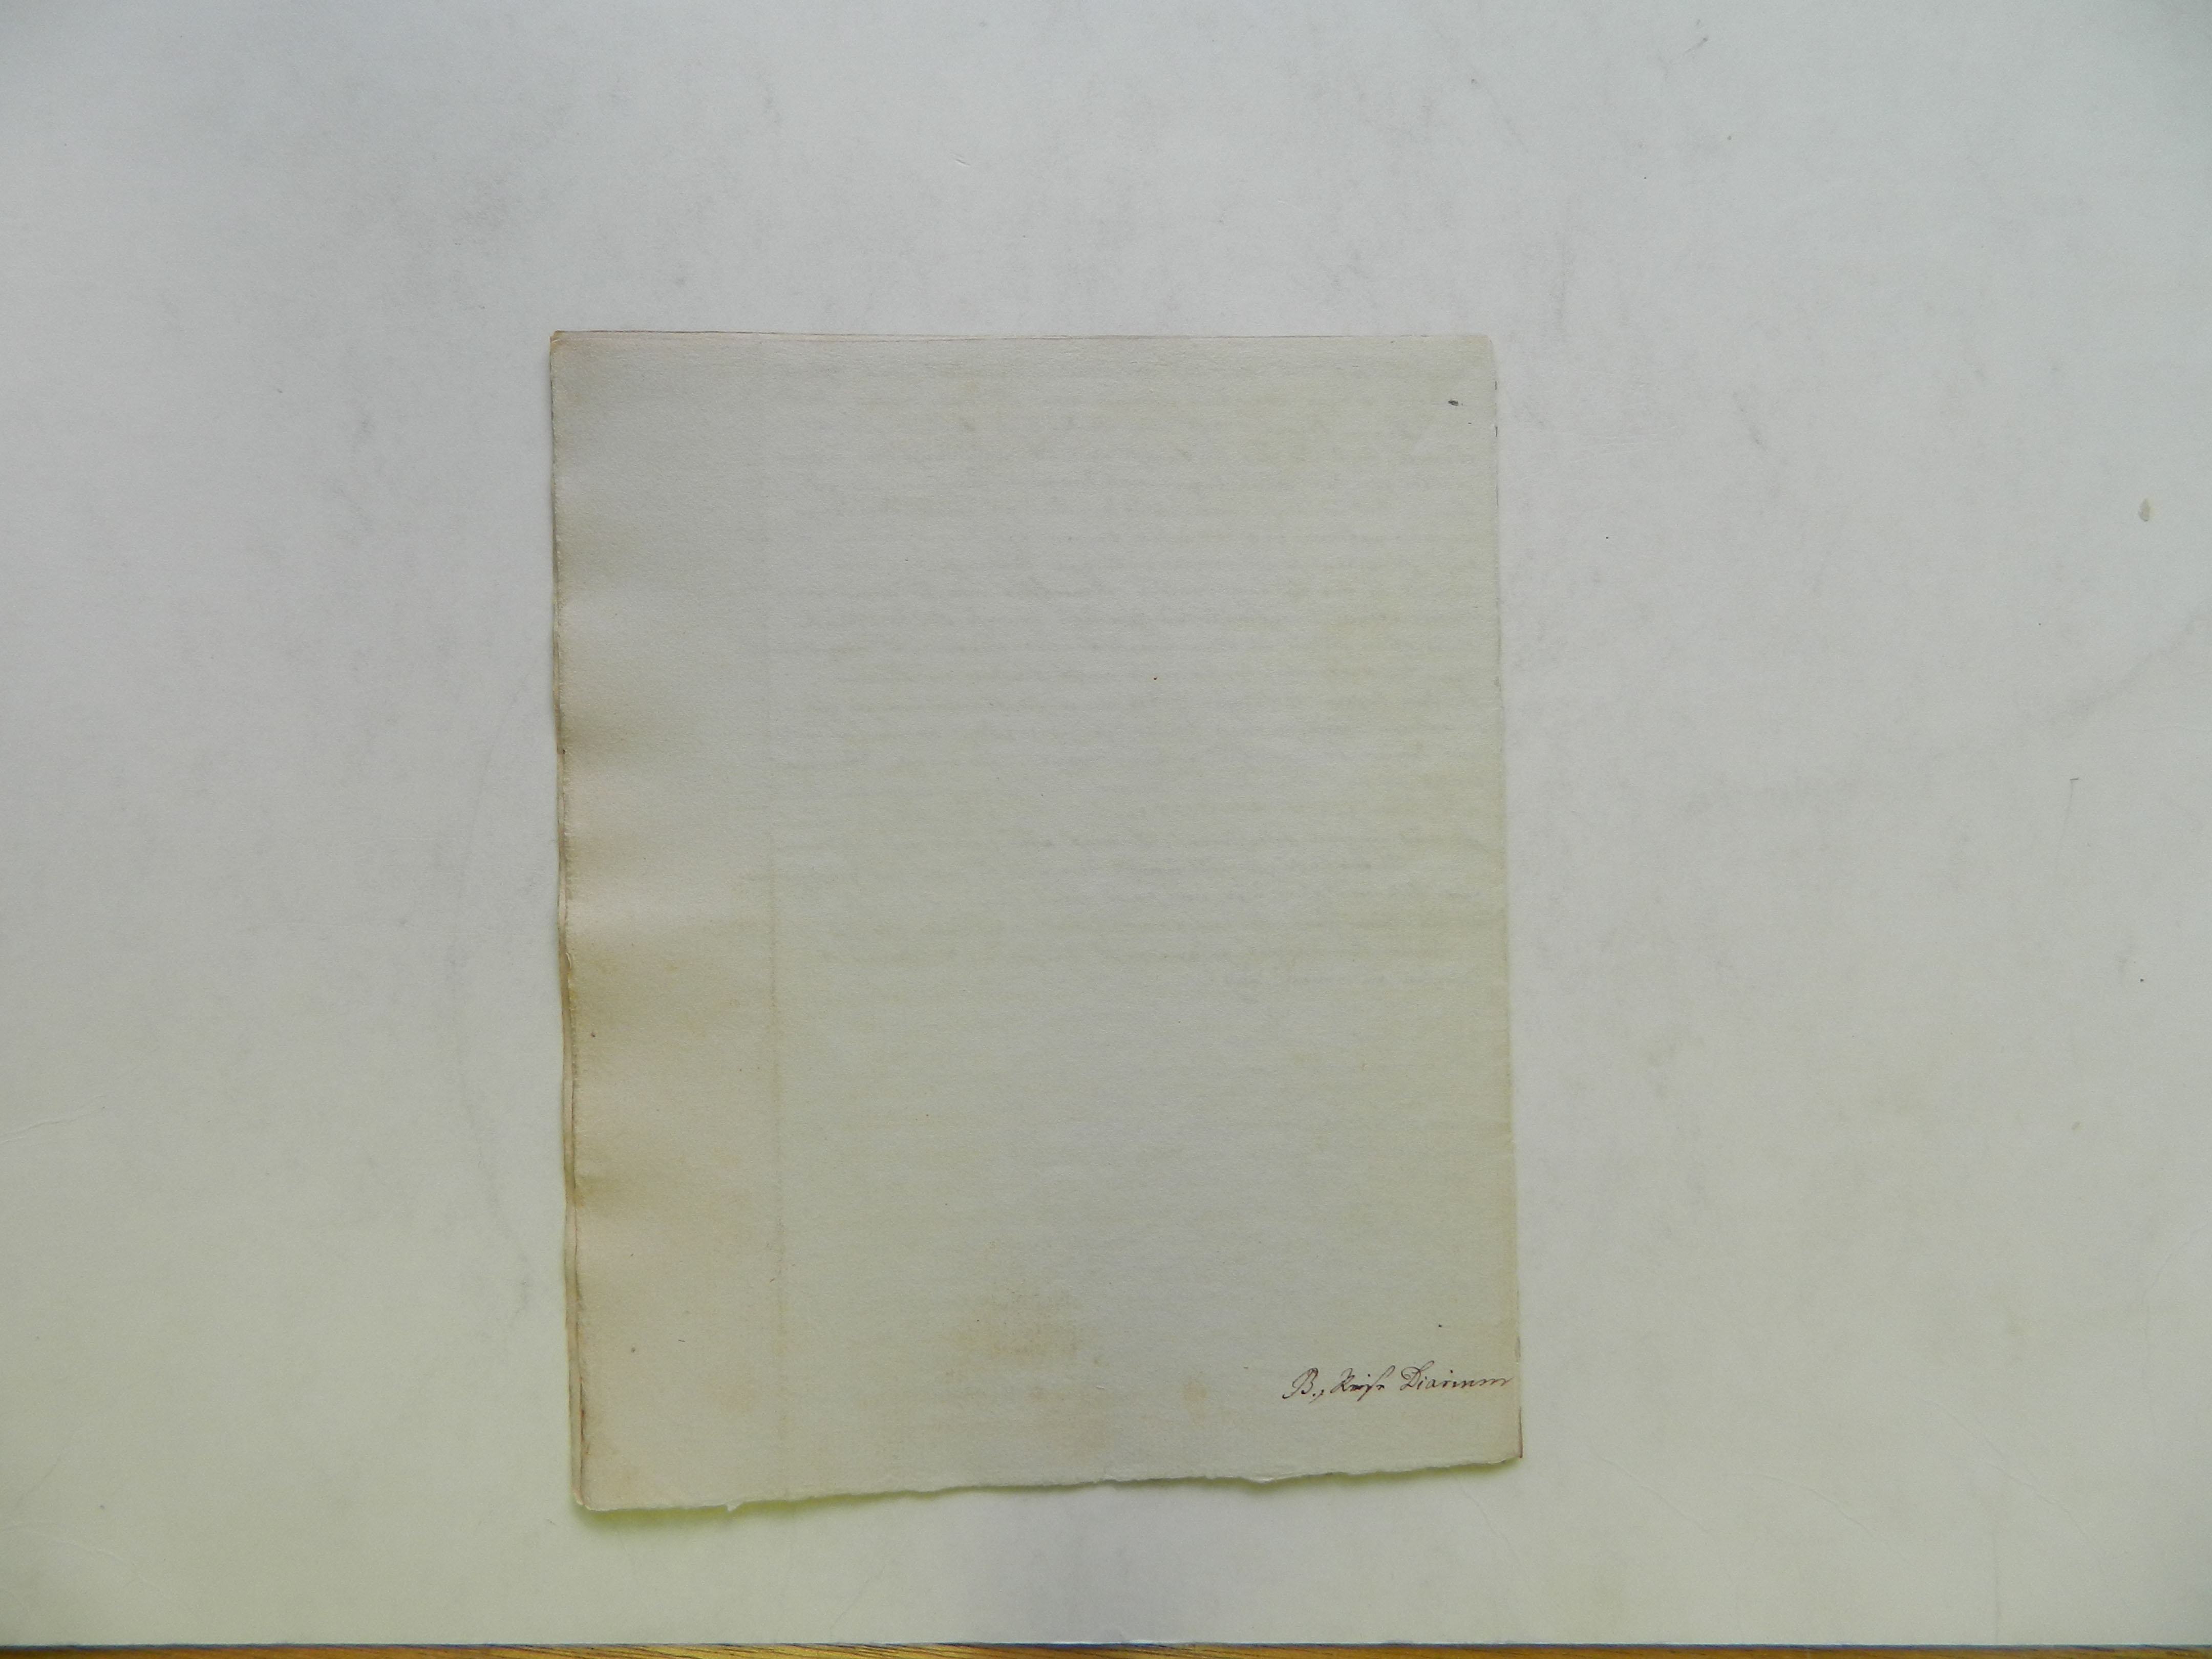 B., Reise Diarium